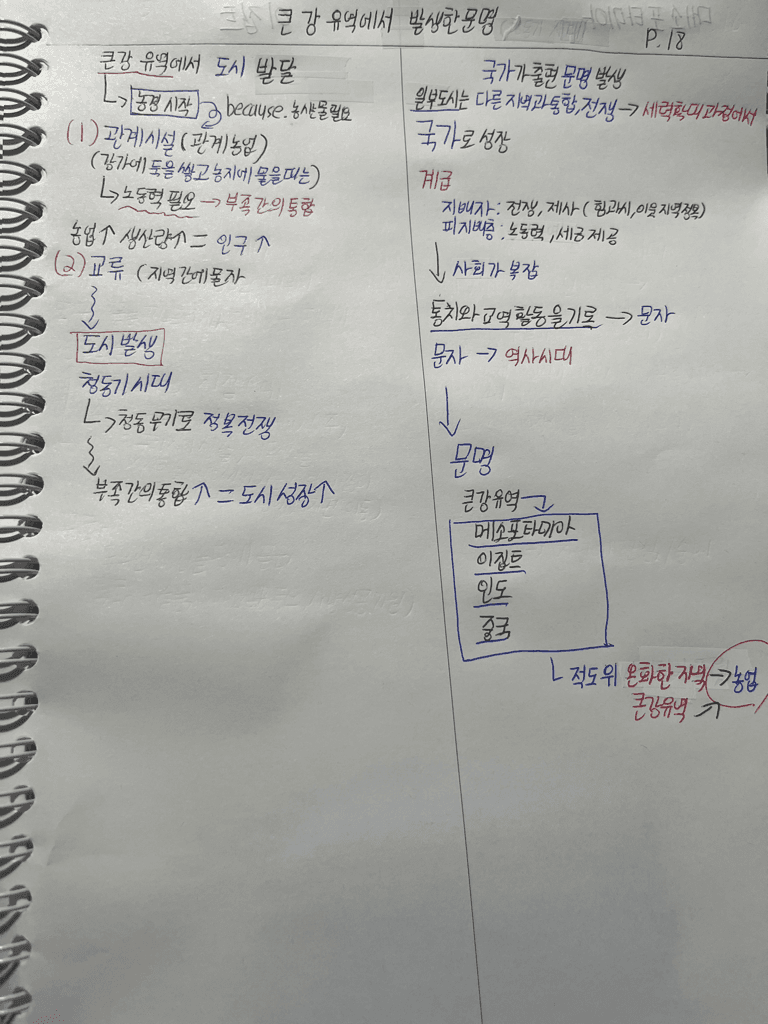 큰 강 유역에서 발생한 문명
P.18
큰강 유역에서 도시 발달
↳ 농경 시작 because. 농사 물 필요
(1) 관계시설 (관계농업)
(강가에 둑을 쌓고 농지에 물을 대는)
↳ 노동력 필요 → 부족간의 통합
농업↑ 생산량↑ = 인구↑
(2) 교류 (지역간에 물자
도시 발생
청동기 시대
↳ 청동무기로 정복전쟁
부족간의 통합↑ = 도시 성장↑
국가가 출현 문명 발생
일부도시는 다른 지역과 통합, 전쟁 → 세력확대 과정에서
국가로 성장
계급
지배자 : 전쟁, 제사 (힘과시, 이웃 지역 정복)
피지배층 : 노동력, 세금 제공
↓ 사회가 복잡
통치와 교역 활동을 기로 → 문자
문자 → 역사시대
↓
문명
큰강유역
메소포타미아
이집트
인도
중국
↳ 적도위 온화한 지역 → 농업
큰강유역 ↗